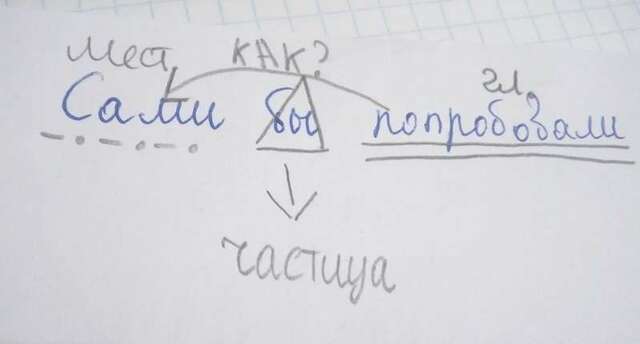 мест. КАК? гл.
Сами бы попробовали
частица